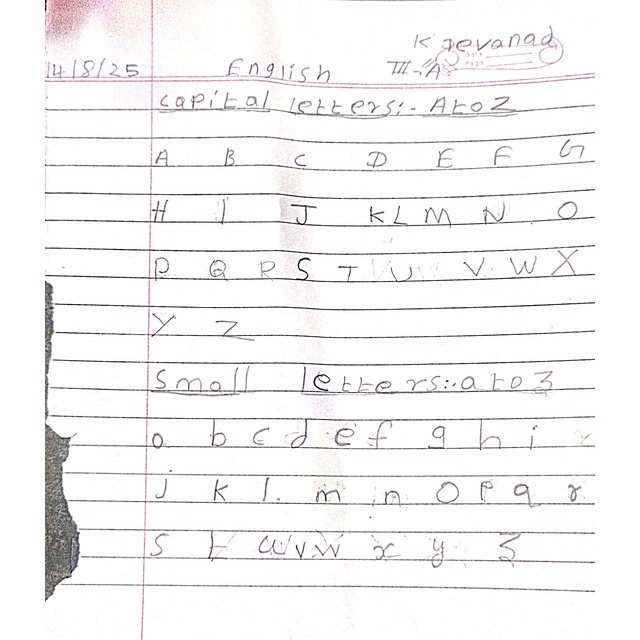 K Jevanad
14/8/25 English III-A
Capital letters:- A to Z
A B C D E F G
H I J K L M N O
P Q R S T U V W X
Y Z
Small letters:- a to z
a b c d e f g h i
j k l. m n o p q r
s t u v w x y z